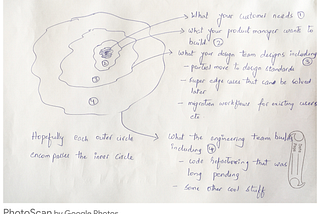 What your customer needs ①
What your product manager wants to
build ②
What your design team designs including ③
- partial move to design standards
- Super edge cases that can be solved
later
- migration workflows for existing users
etc
①
②
③
④
Hopefully each outer circle
encompasses the inner circle
What the engineering team builds
including ④
- code refactoring that was
long pending
- some other cool stuff
PhotoScan by Google Photos